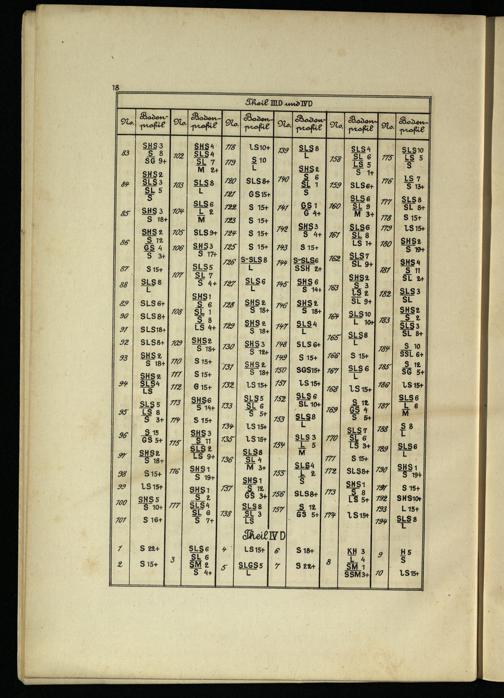 18
Theil III.D und IV D
No. Boden-profil No. Boden-profil No. Boden-profil No. Boden-profil No. Boden-profil No. Boden-profil
83 SHS 3
S 8
SG 9+
84 SHS 2
SLS 3
SL 5
S
85 SHS 3
S 18+
86 SHS 2
S 12
GS 4
S 3+
87 S 15+
88 SLS 8
L
89 SLS 6+
90 SLS 8+
91 SLS 18+
92 SLS 8+
93 SHS 2
S 18+
94 SHS 2
SLS 4
LS
95 SLS 5
LS 8
S 3+
96 S 15
GS 5+
97 SHS 2
S 18+
98 S 15+
99 LS 15+
100 SHS 5
S 10+
101 S 16+
102 SHS 4
SLS 4
SL 7
M 2+
103 SLS 8
L
104 SLS 6
L 2
M
105 SLS 9+
106 SHS 3
S 17+
107 SLS 5
SL 7
S 4+
108 SHS 1
S 6
SL 1
S 8
LS 4+
109 SHS 2
S 18+
110 S 15+
111 S 15+
112 G 15+
113 SHS 6
S 14+
114 S 15+
115 SHS 3
S 11
SLS 2
LS 9+
116 SHS 1
S 19+
117 SHS 1
S 2
SLS 4
SL 6
S 7+
118 LS 10+
119 S 10
L
120 SLS 8+
121 GS 15+
122 S 15+
123 S 15+
124 S 15+
125 S 15+
126 S-SLS 8
L
127 SLS 6
L
128 SHS 2
S 18+
129 SHS 2
S 18+
130 SHS 3
S 12+
131 SHS 2
S 18+
132 LS 15+
133 SLS 5
SL 6
S 5+
134 LS 15+
135 LS 15+
136 SLS 8
SL 4
M 3+
137 SHS 1
S 12
GS 3+
138 SLS 8
SL 3
LS
139 SLS 8
L
140 SHS 2
S 6
SL 1
S
141 GS 1
G 4+
142 SHS 3
S 4+
143 S 15+
144 S-SLS 6
SSH 2+
145 SHS 6
S 14+
146 SHS 2
S 18+
147 SLS 4
L
148 SLS 6+
149 S 15+
150 SGS 15+
151 LS 15+
152 SLS 6
SL 10+
153 SLS 8
L
154 SLS 3
L 5
M
155 SLS 4
L 2
S
156 SLS 8+
157 S 12
GS 5+
158 SLS 4
SL 6
LS 5
S 1+
159 SLS 6+
160 SLS 6
SL 9
M 3+
161 SLS 6
SL 8
LS 1+
162 SLS 7
SL 9+
163 SHS 2
S 3
LS 2
SL 9+
164 SLS 10
L 10+
165 SLS 8
L
166 S 15+
167 SLS 6
L
168 LS 15+
169 S 12
GS 4
S 5+
170 SLS 7
SL 6
LS 3+
171 S 15+
172 SLS 8+
173 SHS 1
S 8
LS 5+
174 LS 15+
175 SLS 10
LS 5
S
176 LS 7
S 13+
177 SLS 8
SL 8+
178 S 15+
179 LS 15+
180 SHS 2
S 19+
181 SHS 4
S 11
SL 2+
182 SLS 3
SL
183 SHS 2
S 2
SLS 3
SL 8+
184 S 10
SSL 6+
185 S 12
SG 5+
186 LS 15+
187 SLS 6
L 6
M
188 S 8
L
189 SLS 6
L
190 SHS 1
S 19+
191 S 15+
192 SHS 10+
193 L 15+
194 SLS 8
L
Theil IV D
1 S 22+
2 S 15+
3 SLS 6
SL 6
SM 2
S 4+
4 LS 15+
5 SLGS 5
L
6 S 18+
7 S 22+
8 KH 3
L 4
SM 1
SSM 3+
9 H 5
S
10 LS 15+